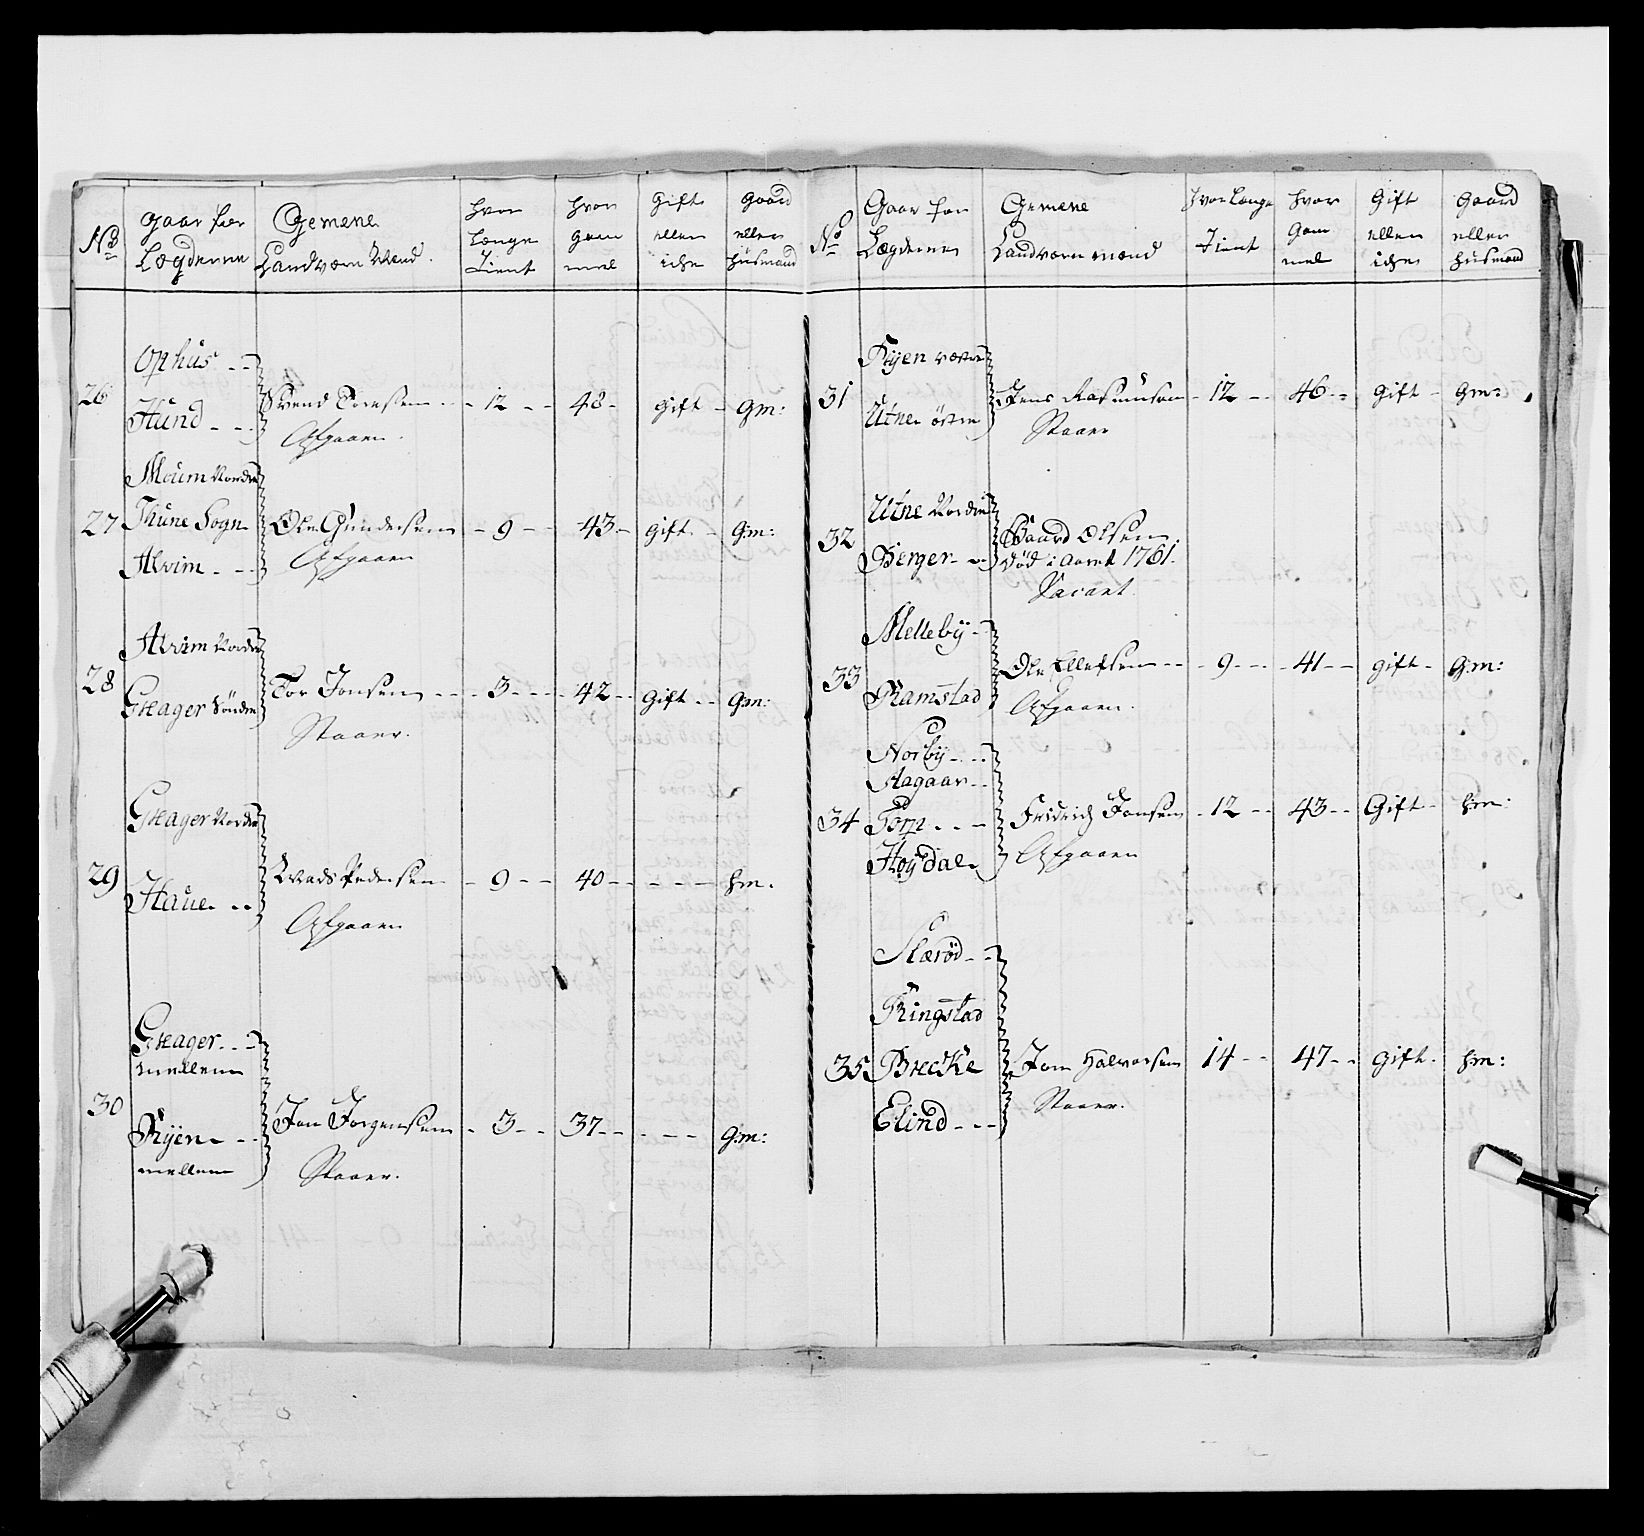 No
Gaar før
Lægderne
Gemene
Landværn Mænd.
hvor
Længe
Tient
hvor
gam
mel
Gift
eller
iche
gaard
eller
husmand
26
Ophus
Hund
Svend Toresen
Afgaaen
12
48
gift
gm:
27
Moum Nordre
Thune Sogn
Alvim
Ole Gundersen
Afgaaen
9
43
gift
g:m:
28
Alvim Nordre
Greager Søndre
Tor Jonsen
Staaer.
3
42
gift
g:m:
29
Greager Nordre
Haue
Mads Pedersen
Afgaaen
9
40
hm.
30
Greager
mellem
Ryen
mellem
Jon Jørgensen
Staaer.
3
37
g:m:
No
Gaar før
Lægderne
Gemene
Landværn mænd
hvor Længe
Tient
hvor
Gam
mel
Gift
eller
iche
Gaard
eller
husmand
31
Ryen
Utne østre
Jens Rasmusen
Staaer
12
46
gift
gm:
32
Utne Nordre
Berger
Baard Olsen
død i aaret 1761.
Vacant.
33
Melleby
Ramstad
Ole Ellefsen
Afgaaen.
9
41
gift
g:m:
34
Norby
Aagaar
Torp
Høydal
Fridrich Jonsen
Afgaaen
12
43
Gift
hm:
35
Slærød
Ringstad
Brecke
Elind
Jon Halvorsen
Staaer.
14
47
gift
hm: